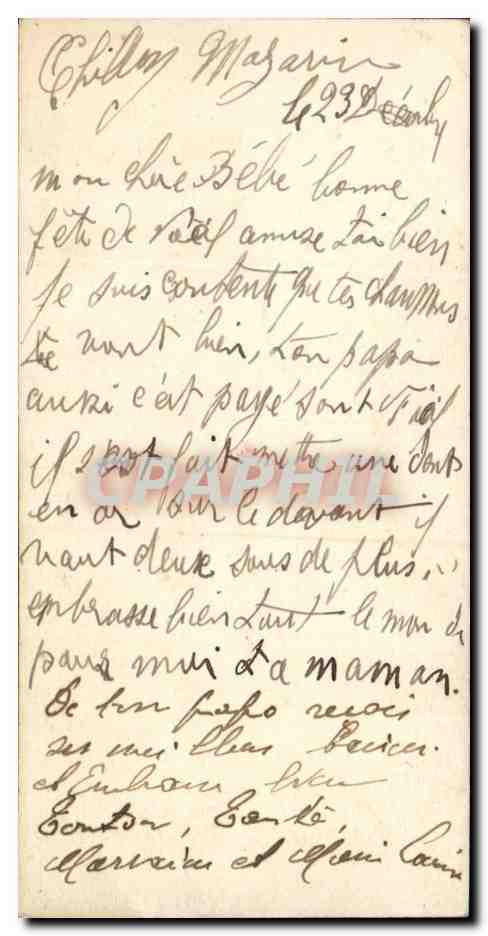 Chilly Mazarin
le 23 Décembre
mon chère Bébé bonne
fête de Noël amuse toi bien
Je suis contente que tes chaussures
te vont bien, ton papa
aussi c'èt payé sont Noël
il s'est fait mettre une dent
en or sur le devant il
vaut deux sous de plus,
embrasse bien tout le monde
pour moi Ta maman.
De ton papa reçois
ses meilleurs baisers
et Embrasse bien
Tonton, Tante,
Marraine et
CPAPHIL